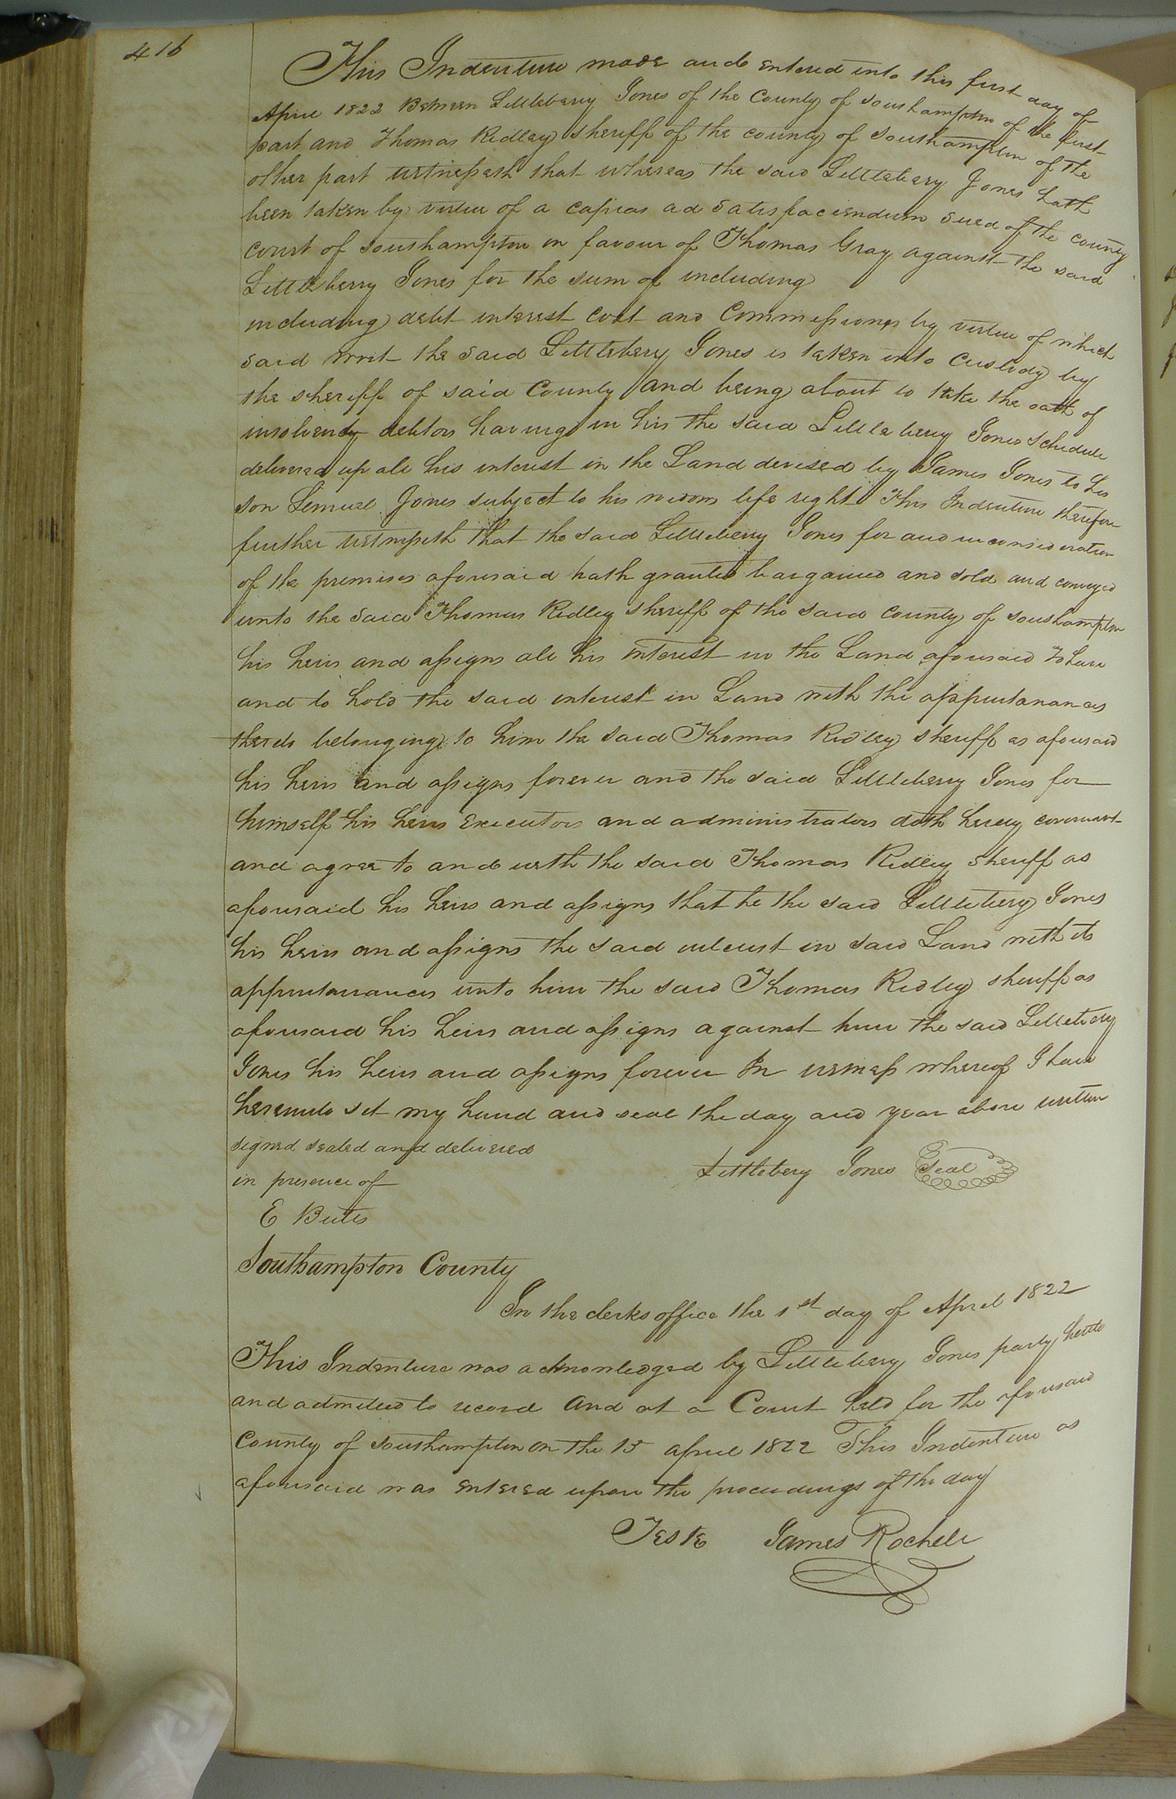 416
This Indenture made and entered into this first day of
April 1822 Between Littleberry Jones of the County of Southampton of the first
part and Thomas Ridley sheriff of the county of Southampton of the
other part witnesseth that whereas the said Littleberry Jones hath
been taken by virtue of a capias ad satisfaciendum sued of the county
court of Southampton in favour of Thomas Gray against the said
Littleberry Jones for the sum of including
including debt interest cost and Commissions by virtue of which
said writ the said Littleberry Jones is taken into custody by
the sheriff of said County and being about to take the oath of
insolvency debtors having in his the said Littleberry Jones schedule
delivered up all his interest in the Land devised by James Jones to his
son Lemuel Jones subject to his widows life right This Indenture therefore
further witnesseth that the said Littleberry Jones for and in consideration
of the premises aforesaid hath granted bargained and sold and conveyed
unto the said Thomas Ridley sheriff of the said county of Southampton
his heirs and assigns all his interest in the Land aforesaid To have
and to hold the said interest in Land with the appurtanances
thereto belonging to him the said Thomas Ridley sheriff as aforesaid
his heirs and assigns forever and the said Littleberry Jones for
himself his heirs Executors and administrators doth hereby covenant
and agree to and with the said Thomas Ridley sheriff as
aforesaid his heirs and assigns that he the said Littleberry Jones
his heirs and assigns the said interest in said Land with its
appurtanances unto him the said Thomas Ridley sheriff as
aforesaid his heirs and assigns against him the said Littleberry
Jones his heirs and assigns forever In witness whereof I have
hereunto set my hand and seal the day and year above written
signed sealed and delivered
in presence of
Littlebery Jones Seal
E Butts
Southampton County
In the clerks office the 1st day of April 1822
This Indenture was acknowledged by Littleberry Jones party hereto
and admitted to record And at a Court held for the aforesaid
County of Southampton on the 15 april 1822 This Indenture as
aforesaid was entered upon the proceedings of the day
Teste James Rochelle